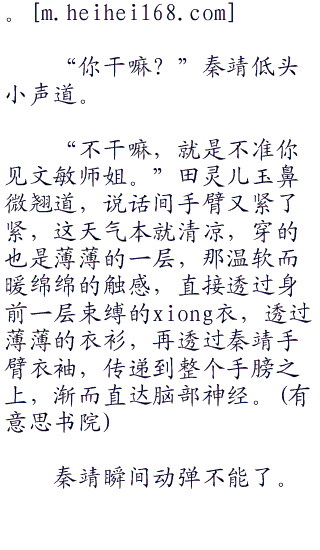 。[m.heihei168.com]
“你干嘛？”秦靖低头
小声道。
“不干嘛，就是不准你
见文敏师姐。”田灵儿玉鼻
微翘道，说话间手臂又紧了
紧，这天气本就清凉，穿的
也是薄薄的一层，那温软而
暖绵绵的触感，直接透过身
前一层束缚的xiong衣，透过
薄薄的衣衫，再透过秦靖手
臂衣袖，传递到整个手膀之
上，渐而直达脑部神经。(有
意思书院)
秦靖瞬间动弹不能了。